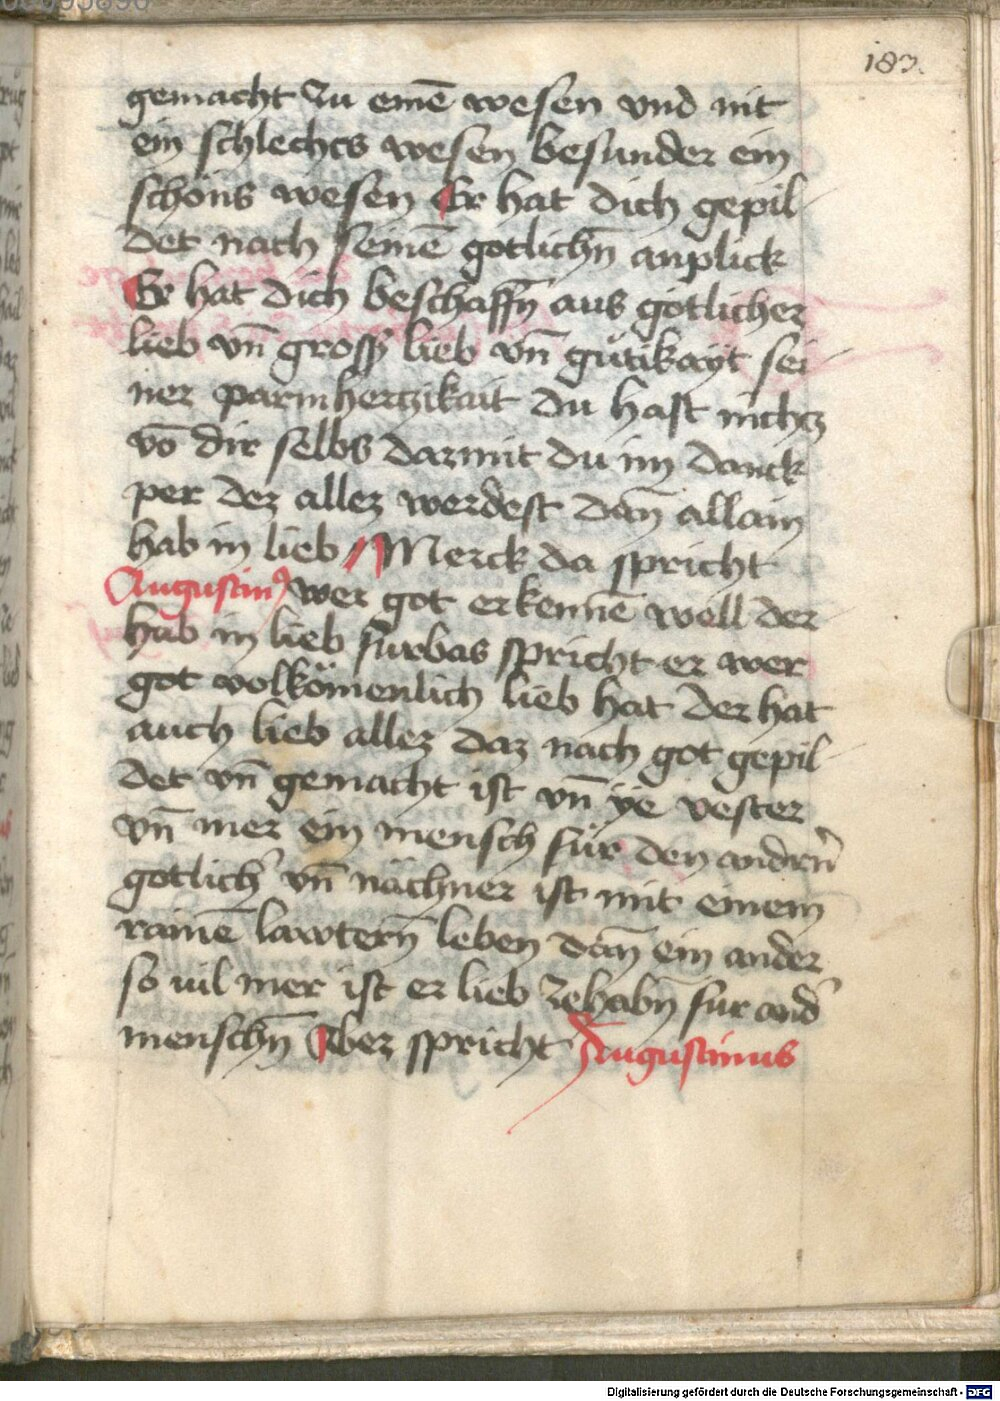 183.
gemacht zu emē wesen vnd nit
ein schlechts wesen besunder ein
schöns wesen Er hat dich gepil
det nach seinē gotlichn̄ anplick
Er hat dich beschaffn̄ aus gotlicher
lieb vn̄ grossz lieb vn̄ gütikayt sei
ner parmherczikait du hast nichcz
vō dir selbs darmit du im danck
per der aller werdest dan̄ allain
hab in lieb // Merck da spricht
Augustin9 wer got erkennē well der
hab in lieb furbas spricht er wer
got volkömenlich lieb hat der hat
auch lieb allez daz nach got gepil
det vn̄ gemacht ist vn̄ ye vester
vn̄ mer ein mensch für den andrn̄
gotlich' vn̄ nächner ist mit einem
rainē lawtern̄ leben dan̄ ein ander
so uil mer ist er lieb zehabn̄ fur and'
menschn̄ Aber spricht Augustinus
Digitalisierung gefördert durch die Deutsche Forschungsgemeinschaft - DFG